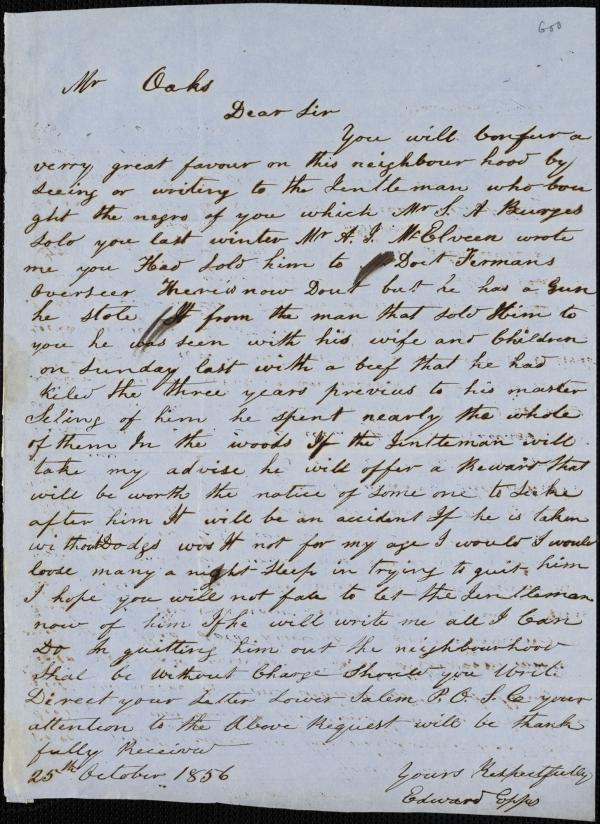 600
Mr Oaks
Dear Sir
You will Confur a
verry great favour on this neighbour hood by
Seeing or writing to the Jentleman who bou
ght the negro of you which Mr S. A Burges
Sold you last winter Mr A. J. McElveen wrote
me you Had Sold him to Doct Fermans
Overseer There is now Dout but he has a Gun
he stole It from the man that sold Him to
you he was seen with his wife and Children
on Sunday last with a beef that he had
Kiled the three years previus to his master
Seling of him he spent nearly the whole
of them In the woods If the Jentleman will
take my advise he will offer a Reward that
will be worth the notice of Some one to Seeke
after him It will be an accident If he is taken
without Dodgs was It not for my age I would I would
loose many a night Sleep in trying to quit him
I hope you will not fale to let the Jentleman
now of him If he will write me all I Can
Do In guitting him out the neighbourhood
Shal be without Charge Should you Write
Direct your Letter Lower Salem P. O. S. C. your
attention to the Above Request will be thank
fully Received
25th October 1856
Yours Respectfully
Edward Epps